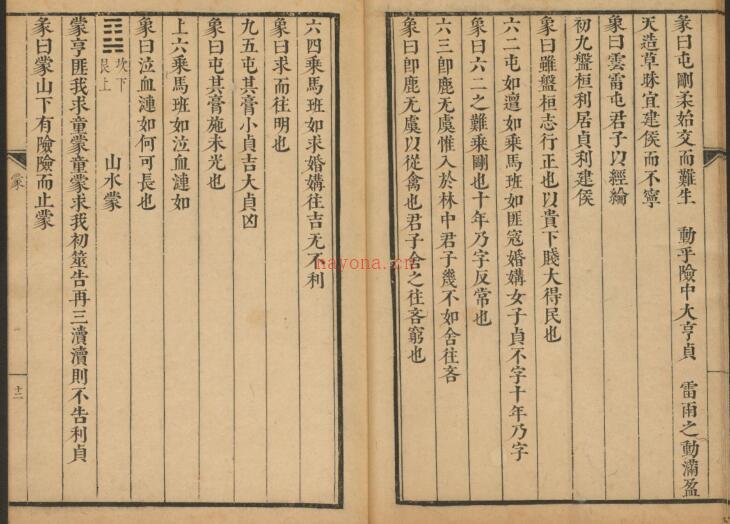 彖曰屯剛柔始交而難生 動乎險中大亨貞 雷雨之動滿盈
天造草昧宜建侯而不寧
象曰雲雷屯君子以經綸
初九盤桓利居貞利建侯
象曰雖盤桓志行正也以貴下賤大得民也
六二屯如邅如乘馬班如匪寇婚媾女子貞不字十年乃字
象曰六二之難乘剛也十年乃字反常也
六三卽鹿无虞惟入於林中君子幾不如舍往吝
象曰卽鹿无虞以從禽也君子舍之往吝窮也
六四乘馬班如求婚媾往吉无不利
象曰求而往明也
九五屯其膏小貞吉大貞凶
象曰屯其膏施未光也
上六乘馬班如泣血漣如
象曰泣血漣如何可長也
坎下
艮上
山水蒙
蒙亨匪我求童蒙童蒙求我初筮告再三瀆瀆則不告利貞
彖曰蒙山下有險險而止蒙
蒙
十二
nayona.cn